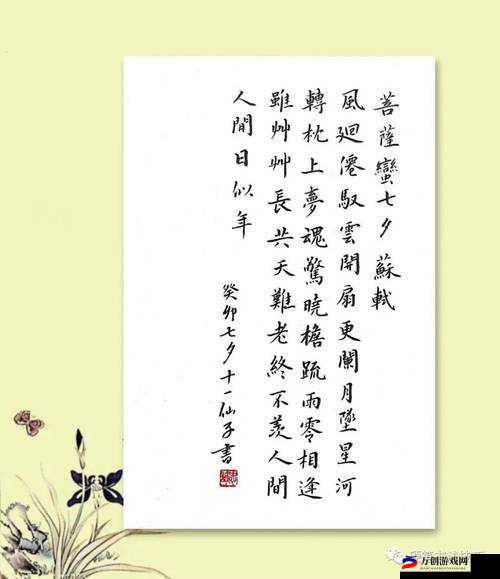 菩薩蠻七夕 蘇軾
風迴僊馭雲開扇更闌月墜星河
轉枕上夢魂驚曉檐疏雨零相逢
雖艸艸長共天難老終不羨人間
人間日似年
癸卯七夕十一仙子書
万创游戏网